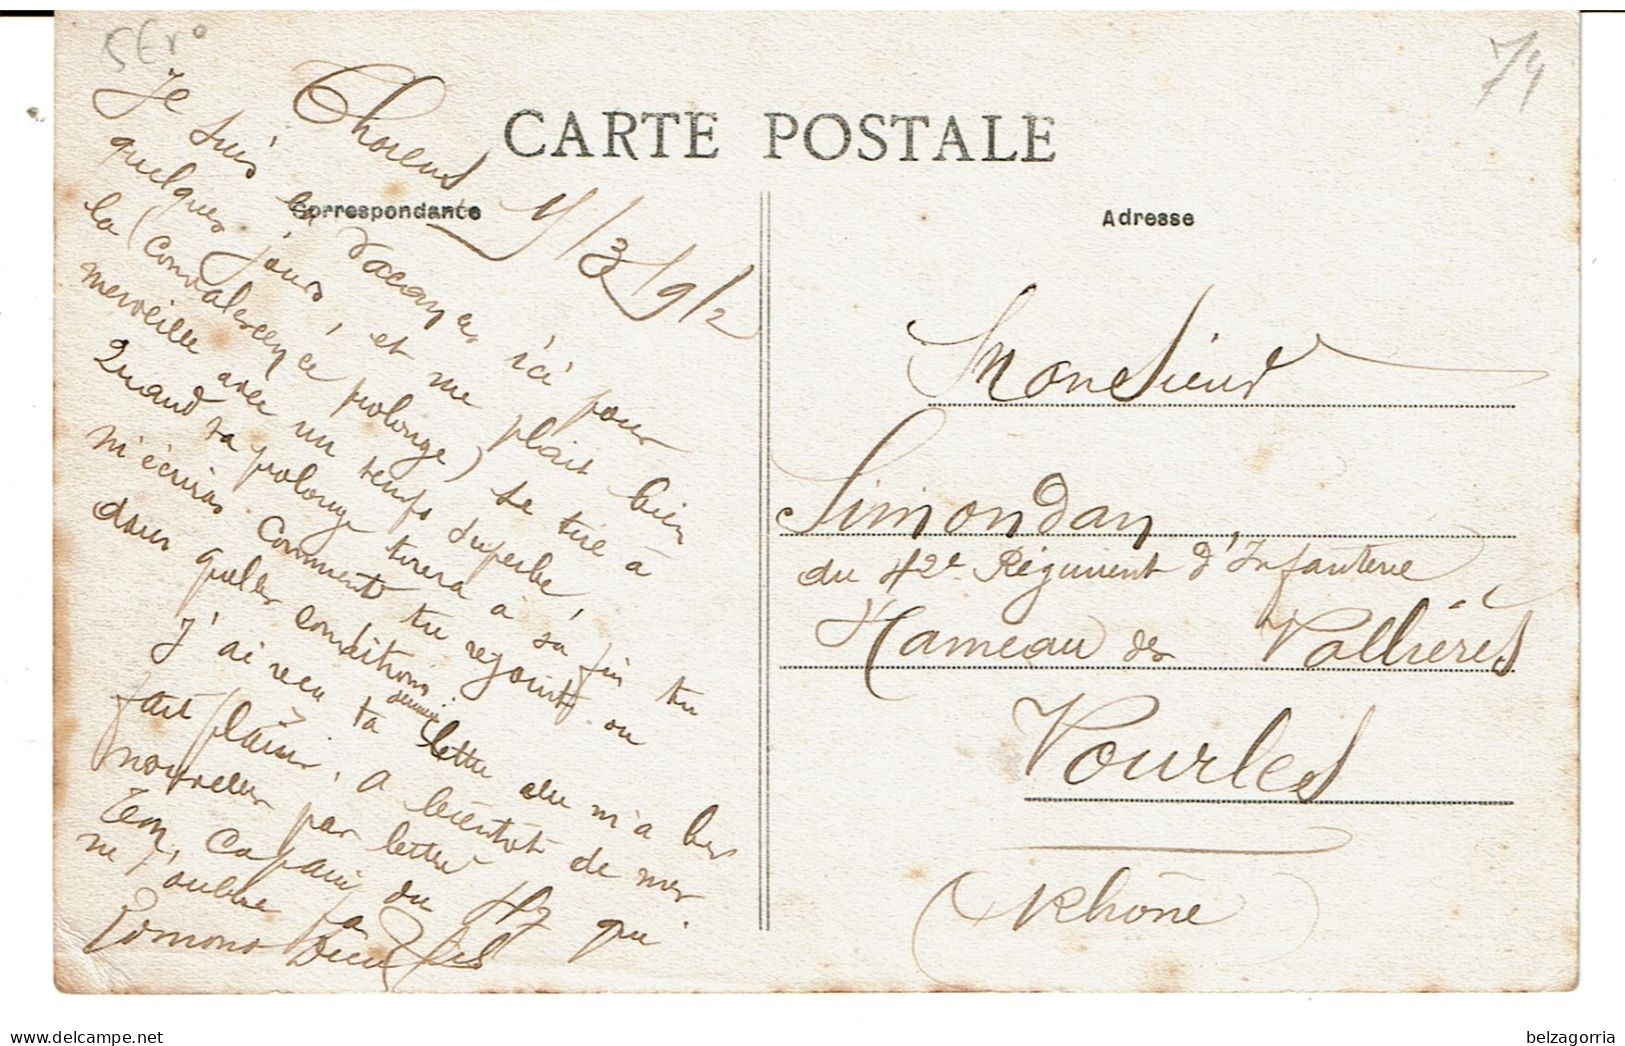 5 Er°
74
CARTE POSTALE
Correspondance
Adresse
Thorens 9/3/912
Je suis en vacances ici pour
quelques jours, et me plait bien
la (convalescence prolongé) se tire à
merveille avec un temps superbe,
Quand ta prolonge tirera à sa fin tu
m'écriras comment tu rejoint ou
dans quelles conditions
J'ai reçu ta dernière lettre elle m'a bien
fait plaisir, a bientôt de mes
nouvelles par lettre
Ton copain du qui
ne t'oublie pas
Monsieur
Simondan
du 42e Régiment d'Infanterie
Hameau des Vallières
Vourles
(Rhône)
belzagorria